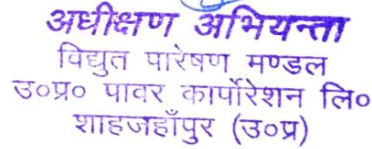 अधीक्षण अभियन्ता
विद्युत पारेषण मण्डल
उ०प्र० पावर कार्पोरेशन लि०
शाहजहाँपुर (उ०प्र)